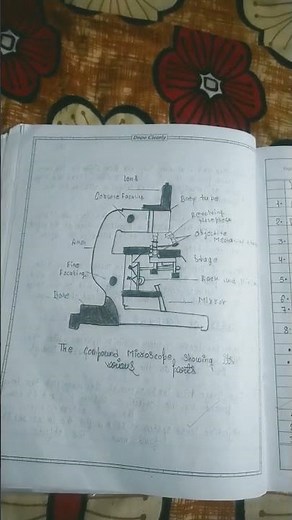 Lens
Coarse Focusing
Body tube
Revolving
Nosepiece
Objective
Arm
Stage
Fine
Focusing
Rack and
Base
Mirror
The Compound Microscope, showing its
various parts
1.
2.
3.
4.
5.
6.
7.
8.